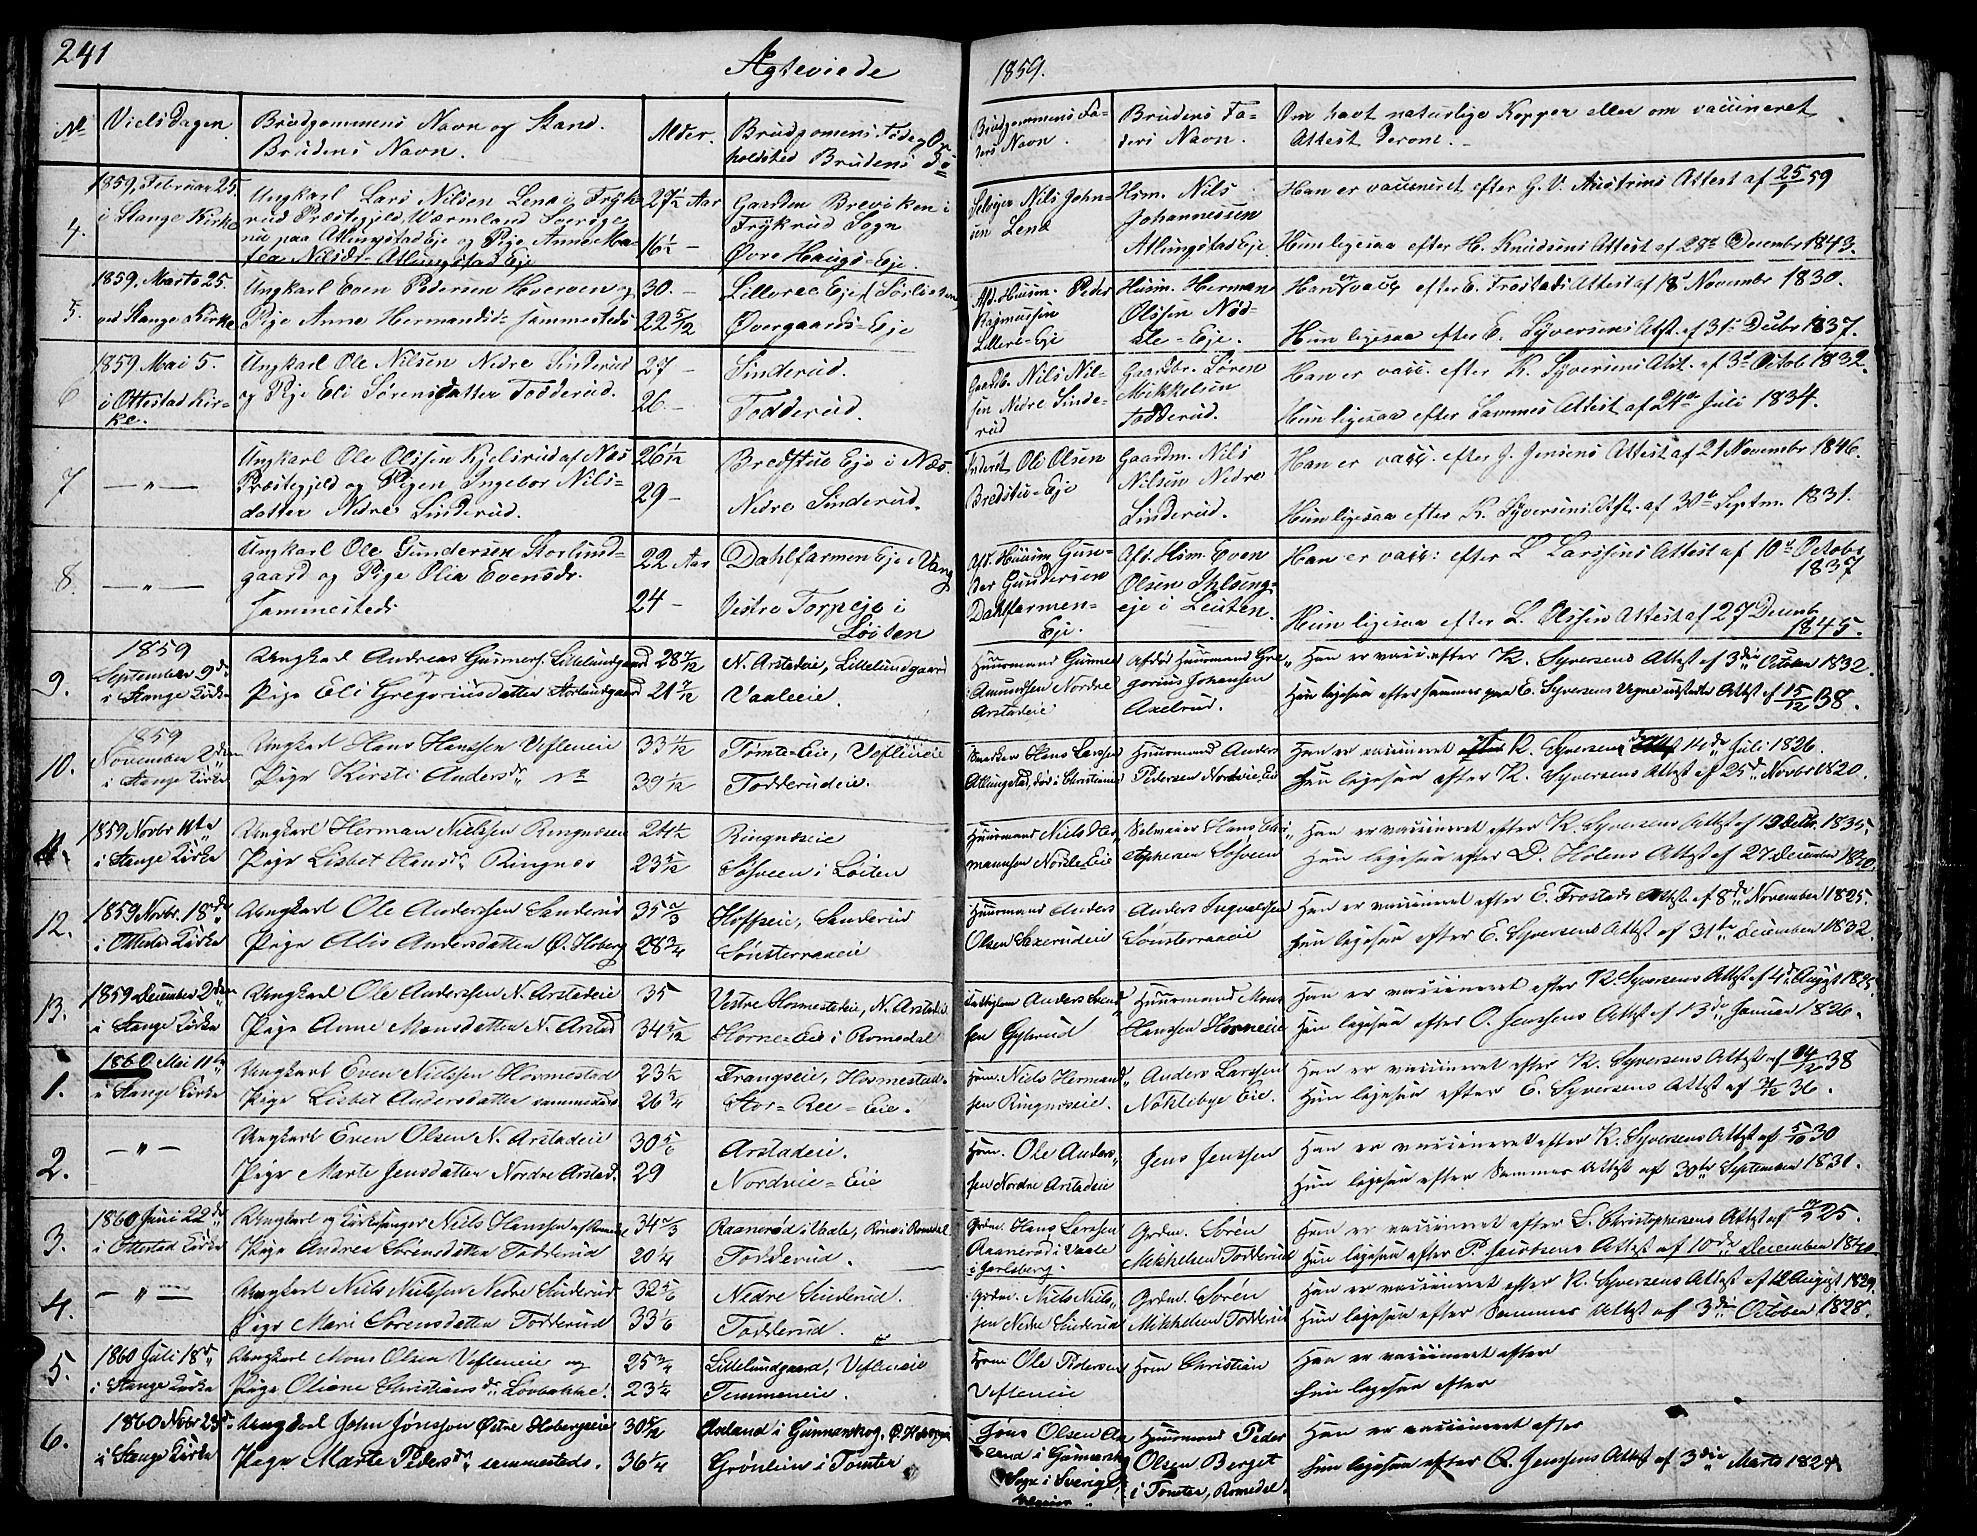 241
Ægteviede
1859.
No
Viels Dagen
Brudgommens Navn og Stand.
Brudens Navn.
Alder.
Brudgomens Føde og Op-
holdsted Brudens do
Brudgommens Fa-
ders Navn.
Brudens Fa-
ders Navn.
Om havt naturlige Kopper eller om vaccineret
Attest derom.
4.
1859, Februar 25.
i Stange Kirke
Ungkarl Lars Nilsen Lena i Fryk-
rud Præstegjeld, Wærmland Sverige,
nu paa Atlungstad Eje og Pige Anne Ma-
rea Nilsdr Atlungstad Eje
27½ Aar
16½ —
Gaarden Breviken i
Frykrud Sogn
Øvre Haugs-Eje.
Selvejer Nils John-
sen Lena
Hsm. Nils
Johannessen
Atlungstad Eje
Han er vaccineret efter G. V. Austrins Attest af 25/1 59
Hun ligesaa efter H. Knudsens Attest af 28de Decembr 1843.
5.
1859, Marts 25.
ved Stange Kirke
Ungkarl Even Pedersen Hverven og
Pige Anne Hermandsdr sammesteds
30. —
22 5/12
Lilleree Eje
Øvergaards-Eje
Afd. Husm. Peder
Rasmussen
Lillere-Eje
Husm. Herman
Olssen Nød-
Eje.
Han er vacc efter E. Frostads Attest af 18d Novembr 1830.
Hun ligesaa efter E. Syversens Attst. af 31te Decbr 1837.
6
1859 Mai 5.
i Ottestad Kir-
ke.
Ungkarl Ole Nilsen Nedre Sinderud
og Pige Eli Sørensdatter Tødderud.
27 —
26. —
Sinderud.
Tødderud.
Gaardb. Nils Nil-
sen Nedre Sinde-
rud
Gaardbr. Søren
Mikkelsen
Tødderud.
Han er vacc. efter K. Syversens Atst. af 3d Octob 1832.
Hun ligesaa efter Sammes Attest af 24de Juli 1834.
7
— „ —
Ungkarl Ole Olssen Kjelsrud af Næs
Præstegjeld og Pigen Ingebor Nils-
datter Nedre Sinderud.
26½
29 —
Bredstue Eje i Næs.
Nedre Sinderud.
Ole Olsen
Bredstu-Eje
Gaardm. Nils
Nilsen Nedre
Sinderud.
Han er vacc. efter J. Jensens Attest af 21 Novembr 1846.
Hun ligesaa efter K. Syversens Attst. af 30te Septm. 1831.
8.
— „ —
Ungkarl Ole Gundersen Storlund-
gaard og Pige Olia Evensdr.
sammesteds
22 Aar
24 —
Dahlfarmen Eje i Vang
Vestre Torpeje i
Løiten
Afd. Huusm Gun-
der Gundersen
Dahlfarmen-
Eje.
Afd. Hsm. Even
Olsen
eje i Leuten.
Han er vacc: efter L Larsens Attest af 10de Octobr
1837
Hun ligesaa efter L. Olssens Attest af 27 Decemb
1845.
9.
1859
September 9de
i Stange Kirke
Ungkarl Andreas Gunners. Lillelundgaard
Pige Eli Gregoriusdatter Storlundgaard
28 7/12
21 7/12
N. Arstadeie, Lillelundgaard
Vaaleeie.
Huusmand Gunner
Amundsen Nordre
Arstadeie
Afdød Huusmand Gre-
gorius Johansen
Axelrud.
Han er vacc. efter K. Syversens Attest af 3die October 1832.
Hun ligesaa efter sammes paa E. Syversens Vegne udstedte Attest af 15/12 38.
10.
1859
November 2den
i Stange Kirke
Ungkarl Hans Hanssen Vefleneie
Pige Kirsti Andersdr
33 1/12
39 1/12
Tomte-Eie, Vefleneie
Todderudeie.
Hans Larssen
Atlungstad, død i Christiania
Huusmand Anders
Pedersen Nordvie-Eie
Han er vaccineret efter K. Syversens Attst 14de Juli 1826.
Hun ligesaa efter K. Syversens Attest af 25de Novbr 1820.
11.
1859 Novbr 11te
i Stange Kirke
Ungkarl Herman Nielssen Ringnæseie
Pige Lisbet Hansdr Ringnæs
24½
23 5/12
Ringnæseie
Sosveen i Løiten
Huusmand Niels Her-
mannsen Nordre-Eie
Selveier Hans Chri-
stophersen Sosveen
Han er vaccineret efter K. Syversens Attest af 19 Octbr. 1835.
Hun ligesaa efter D. Holens Attest af 27 December 1840.
12.
1859 Novbr. 18de
i Ottestad Kirke
Ungkarl Ole Anderssen Sanderud
Pige Alis Andersdatter Ø. Hoberg
35 2/3
28 3/4
Hoffseie, Sanderud
Lønsterraaeie
Huusmand Anders
Olsen Saxerudeie
Anders Ingvaldsen
Lønsterraaeie
Han er vaccineret efter E. Frostads Attest af 8de November 1825.
Hun ligesaa efter E. Syversens Attest af 31te December 1832.
13.
1859 December 2den
i Stange Kirke
Ungkarl Ole Anderssen N. Arstadeie
Pige Anne Monsdatter N. Arstad
35
34 5/12
Vestre Hormestadeie, N. Arstadeie.
Horne-Eie i Romedal
Anders Svend-
sen Gylerud
Huusmand Mons
Hanssen Horneeie
Han er vaccineret efter K. Syversens Attest af 4de August 1825.
Hun ligesaa efter O. Jenssens Attest af 13de Januar 1826.
1.
1860 Mai 11te
i Stange Kirke
Ungkarl Even Nielssen Hormestad
Pige Lisbet Andersdatter sammesteds
23½
26 3/4
Frangseie, Hormestad.
Stor-Ree-Eie.
Hsm. Niels Hermand-
sen Ringnæseie.
Anders Larssen
Nøklebye Eie.
Han er vaccineret efter K. Syversens Attest af 14/12 38
Hun ligesaa efter E. Syversens Attest af 3/12 36.
2.
— „ —
Ungkarl Even Olsen N. Arstadeie
Pige Marte Jensdatter Nordre Arstad.
30 5/6
29
Arstadeie.
Nordvie-Eie
Hsm. Ole Anders-
sen Nordre Arstadeie
Jens Jenssen
Han er vaccineret efter K. Syversens Attest af 5/10 30
Hun ligesaa efter Sammes Attest af 30te September 1831.
3.
1860 Juni 22de
i Ottestad Kirke
Ungkarl og Kirkesanger Niels Hanssen af Romedal
Pige Andrea Sørensdatter Todderud
34 2/3
20 1/4
Raanerød i Vaale, Rønø i Romedal
Todderud.
Grdm. Hans Larssen
Raanerød i Vaale
i Jarlsberg.
Grdm. Sørén
Mikkelsen Todderud
Han er vaccineret efter S. Christophersens Attest af 17/7 25.
Hun ligesaa efter P. Jacobsens Attest af 10de December 1840.
4.
— „ —
Ungkarl Niels Nielssen Nedre Sinderud
Pige Mari Sørensdatter Todderud
32 5/6
33 1/6
Nedre Sinderud.
Todderud.
Grdm. Niels Niels-
sen Nedre Sinderud
Grdm. Sørén
Mikkelsen Todderud
Han er vaccineret efter K. Syversens Attest af 12 August 1829.
Hun ligesaa efter Sammes Attest af 3die October 1828.
5.
1860 Juli 18de
i Stange Kirke
Ungkarl Mons Olsen Vefleneie og
Pige Oliane Christiansdr Lovbakke.
25 3/4
23 1/4
Lillelundgaard, Vefleneie
Temmeneie.
Hsm Ole Pedersen
Vefleneie
Hsm Christian
Han er vaccineret efter
Hun ligesaa efter
6.
1860 Nobr 23de
i Stange Kirke
Ungkarl John Jonsson Østre Hobergseie
Pige Marte Pedersdr sammesteds.
30 5/12
36 1/4
Axland i Gunnarskog, Ø. Hobergseie
Grønlien i Tomter
Jöns Olsen Ax
land i Gunnarskog
Sogn i Sverige,
Huusmand Peder
Olsen Berget
i Tomter, Romedal.
Han er vaccineret efter
Hun ligesaa efter O. Jenssens Attest af 3die Marts 1824.